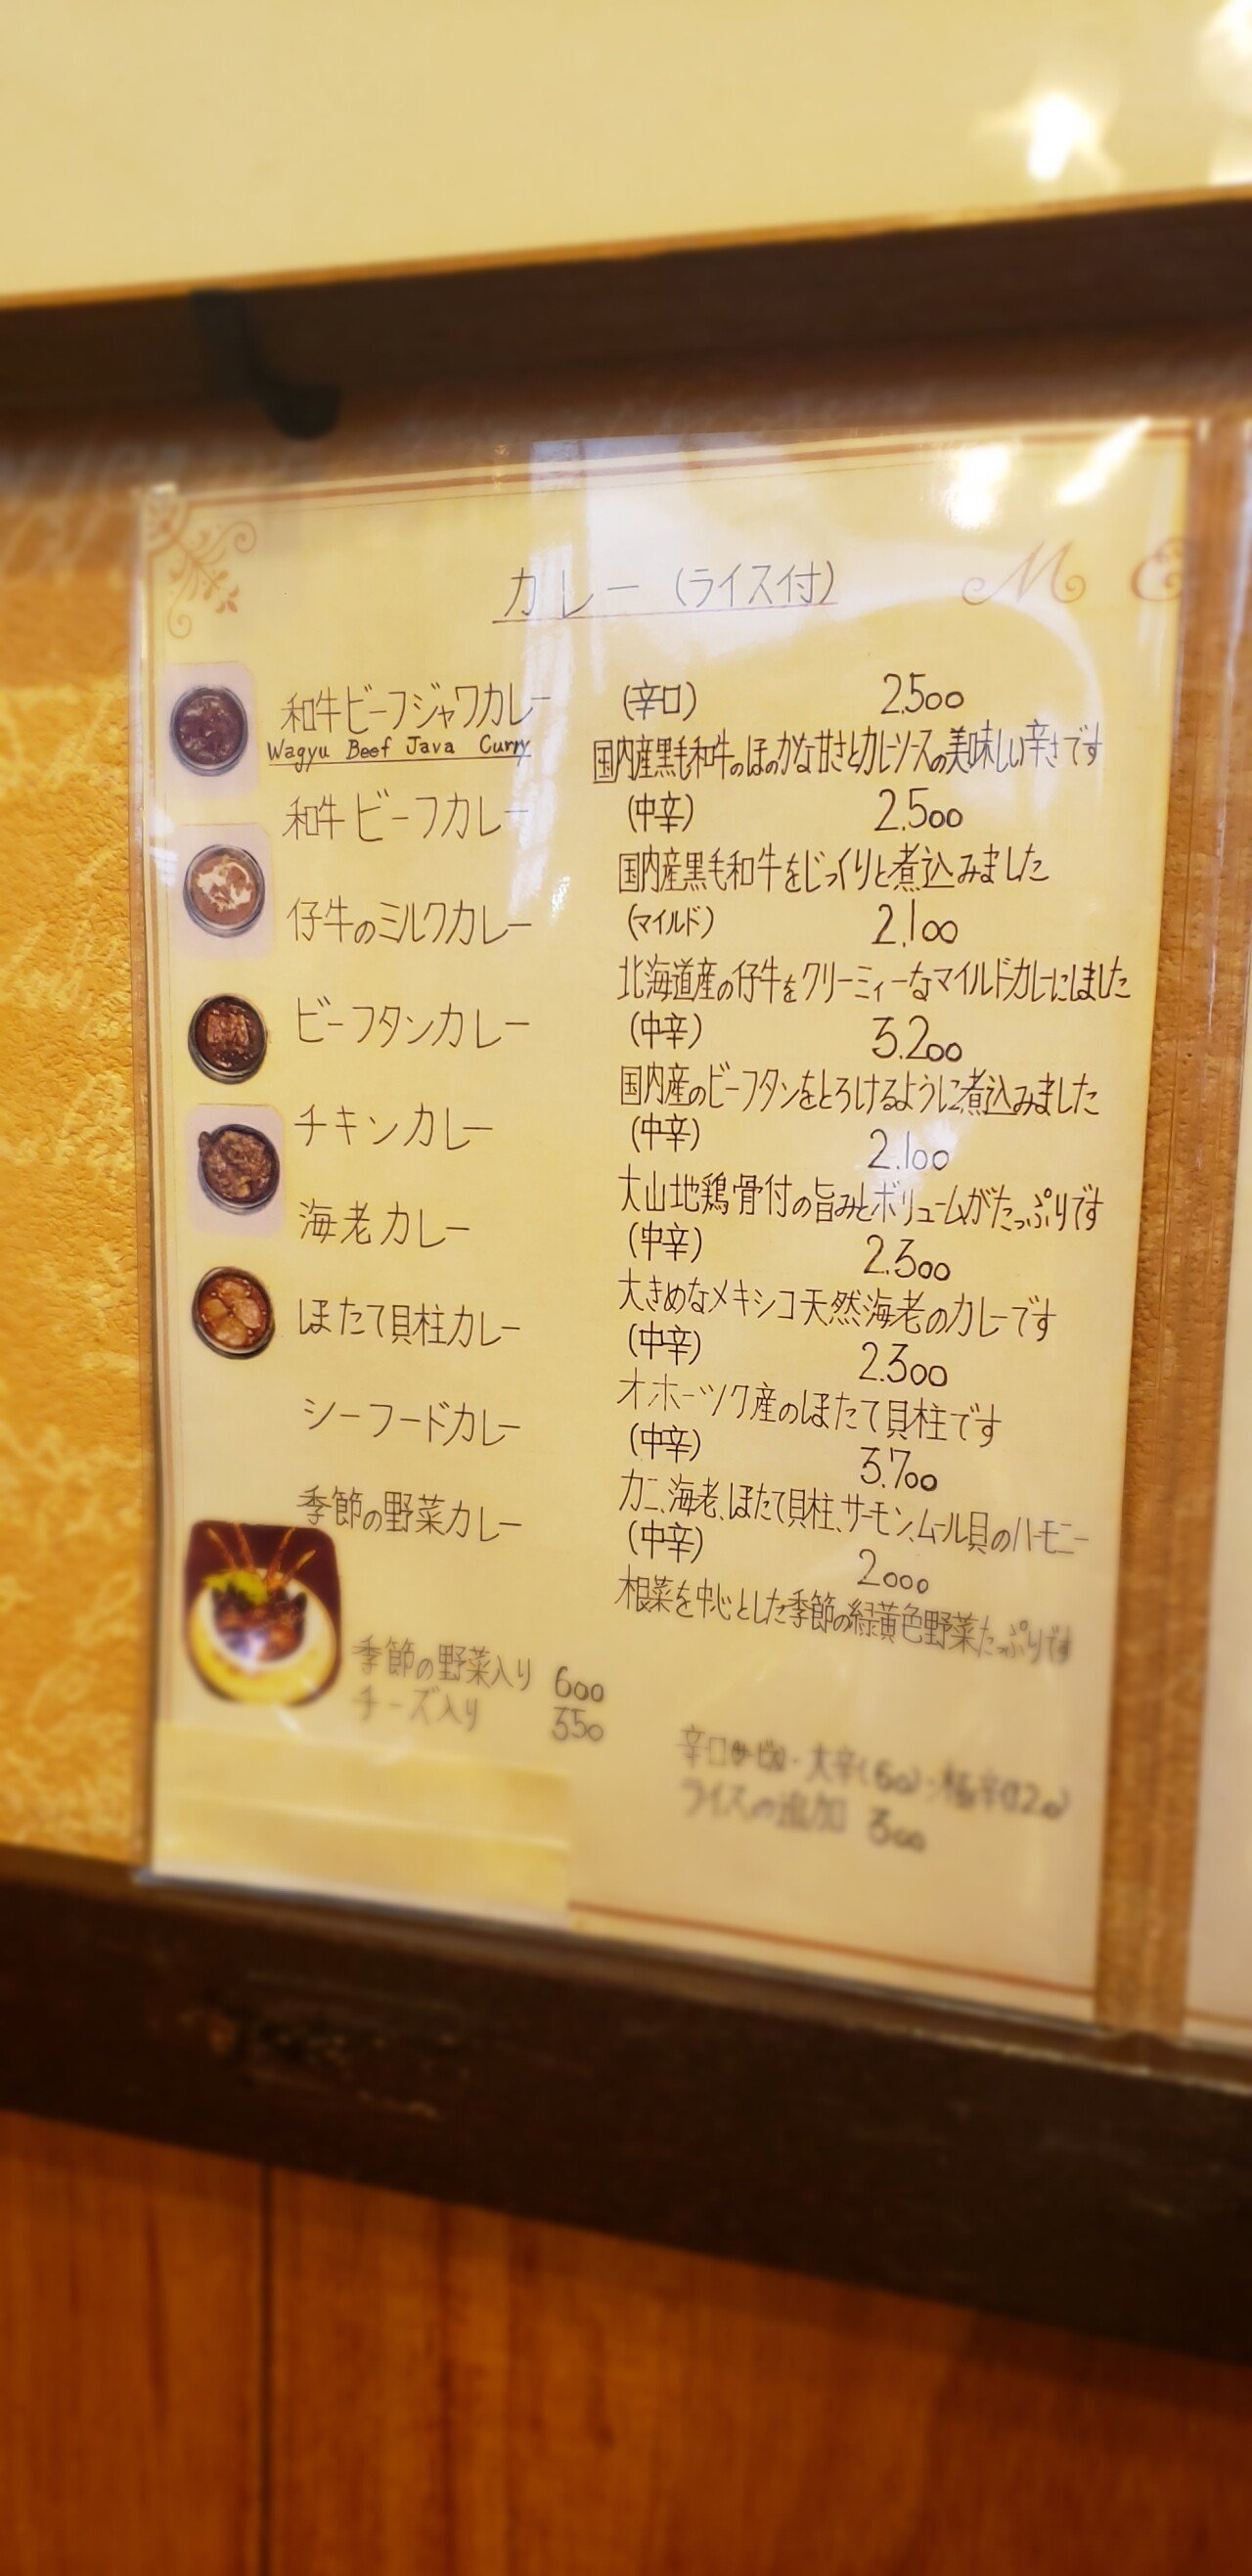 M E
カレー (ライス付)
和牛ビーフジャワカレー (辛口) 2.500
Wagyu Beef Java Curry
国内産黒毛和牛のほのかな甘さとカレーソースの美味しい辛さです
和牛ビーフカレー (中辛) 2.500
国内産黒毛和牛をじっくりと煮込みました
仔牛のミルクカレー (マイルド) 2.100
北海道産の仔牛をクリーミィーなマイルドカレーにしました
ビーフタンカレー (中辛) 3.200
国内産のビーフタンをとろけるように煮込みました
チキンカレー (中辛) 2.100
大山地鶏骨付の旨みとボリュームがたっぷりです
海老カレー (中辛) 2.300
大きめなメキシコ天然海老のカレーです
ほたて貝柱カレー (中辛) 2.300
オホーツク産のほたて貝柱です
シーフードカレー (中辛) 3.700
カニ、海老、ほたて貝柱、サーモン、ムール貝のハーモニー
季節の野菜カレー (中辛) 2000
根菜を中心とした季節の緑黄色野菜たっぷりです
季節の野菜入り 600
チーズ入り 350
辛口 大辛
ライスの追加 300